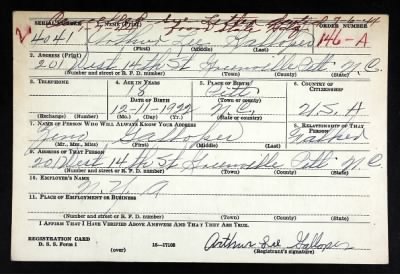 SERIAL NUMBER 1. NAME (Print) ORDER NUMBER
4041 Arthur Lee 146-A
(First) (Middle) (Last)
2. ADDRESS (Print)
201 West 14th St Greenville Pitt N.C.
(Number and street or R. F. D. number) (Town) (County) (State)
3. TELEPHONE 4. AGE IN YEARS 5. PLACE OF BIRTH 6. COUNTRY OF CITIZENSHIP
Pitt
DATE OF BIRTH (Town or county)
12-11-1922 N.C. U.S.A
(Exchange) (Number) (Mo.) (Day) (Yr.) (State or country)
7. NAME OF PERSON WHO WILL ALWAYS KNOW YOUR ADDRESS 8. RELATIONSHIP OF THAT PERSON
(Mr., Mrs., Miss) (First) (Middle) (Last)
9. ADDRESS OF THAT PERSON
201 West 14th St Greenville Pitt N.C.
(Number and street or R. F. D. number) (Town) (County) (State)
10. EMPLOYER'S NAME
N.Y.A
11. PLACE OF EMPLOYMENT OR BUSINESS
(Number and street or R. F. D. number) (Town) (County) (State)
I AFFIRM THAT I HAVE VERIFIED ABOVE ANSWERS AND THAT THEY ARE TRUE.
REGISTRATION CARD
D. S. S. Form 1 (over) 16-17105 Arthur Lee Galloper
(Registrant's signature)